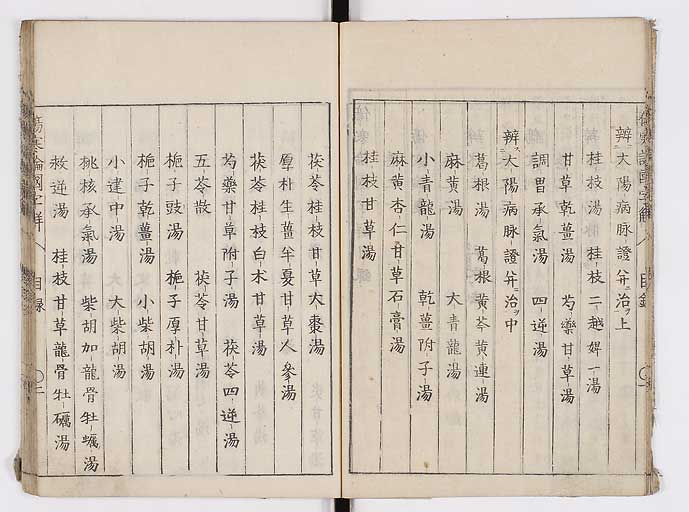 辨太陽病脉證并治上
桂枝湯 桂枝二越婢一湯
甘草乾薑湯 芍藥甘草湯
調胃承氣湯 四逆湯
辨太陽病脉證并治中
葛根湯 葛根黄芩黄連湯
麻黄湯 大青龍湯
小青龍湯 乾薑附子湯
麻黄杏仁甘草石膏湯
桂枝甘草湯
茯苓桂枝甘草大棗湯
厚朴生薑半夏甘草人參湯
茯苓桂枝白朮甘草湯
芍藥甘草附子湯 茯苓四逆湯
五苓散 茯苓甘草湯
梔子豉湯 梔子厚朴湯
梔子乾薑湯 小柴胡湯
小建中湯 大柴胡湯
桃核承氣湯 柴胡加龍骨牡蠣湯
救逆湯 桂枝甘草龍骨牡礪湯
傷寒論國字解 目録 二